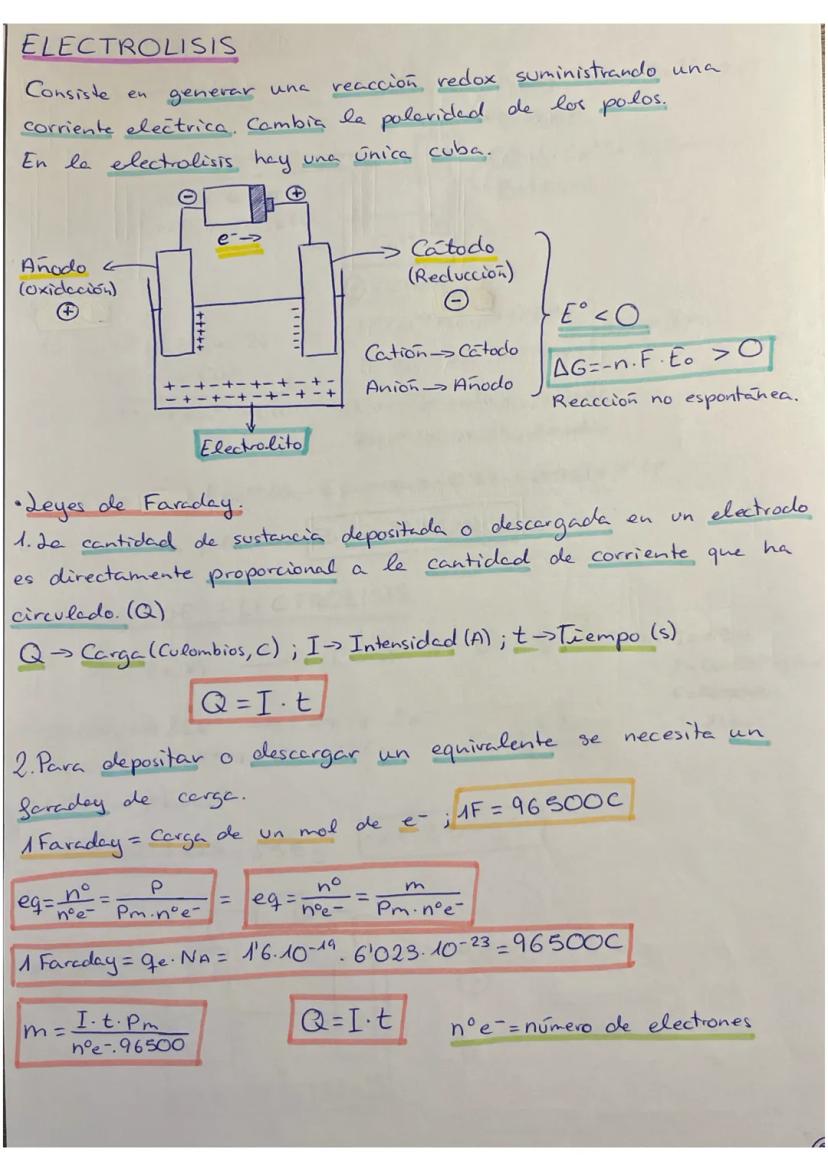 ELECTROLISIS
Consiste en generar una reacción redox suministrando una
corriente eléctrica. Cambia la polaridad de los polos.
En la electrolisis hay una única cuba.
⊖ ⊕
e⁻→
Añodo
(Oxidación)
⊕
Cátodo
(Reducción)
⊖
Catión → Cátodo
Anión → Añodo
E° < 0
ΔG = -n·F·E₀ > 0
Reacción no espontánea.
+ + + + +
- - - - - -
+ - + - + - + - + - + -
- + - + - + - + - + - +
Electrolito
· Leyes de Faraday.
1. La cantidad de sustancia depositada o descargada en un electrodo
es directamente proporcional a la cantidad de corriente que ha
circulado. (Q)
Q → Carga (Culombios, C) ; I → Intensidad (A) ; t → Tiempo (s)
Q = I · t
2. Para depositar o descargar un equivalente se necesita un
faraday de carga.
1 Faraday = Carga de un mol de e⁻ ; 1F = 96500C
eq = nº/nºe⁻ = P/Pm·nºe⁻ = eq = nº/nºe⁻ = m/Pm·nºe⁻
1 Faraday = qe·NA = 1'6·10⁻¹⁹ · 6'023·10⁻²³ = 96500C
m = I·t·Pm/nºe⁻·96500
Q = I·t
nºe⁻ = número de electrones